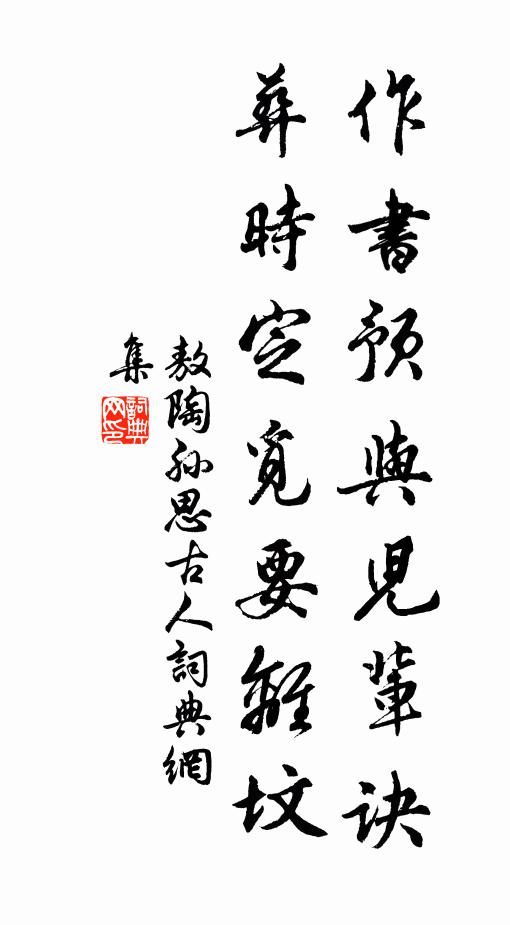 作書預與兒輩訣
葬時定覓要離墳
敖陶孫思古人詞典網
集
詞典
网印